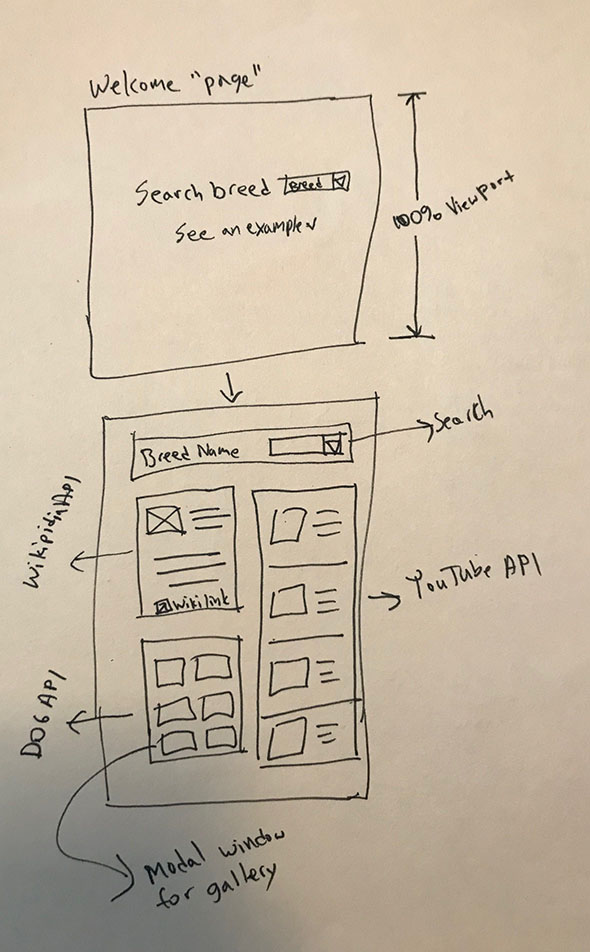 Welcome "page"
Search breed Breed
See an example
100% Viewport
Breed Name
Search
Wikipidia API
Wikilink
YouTube API
DOG API
Modal window
for gallery